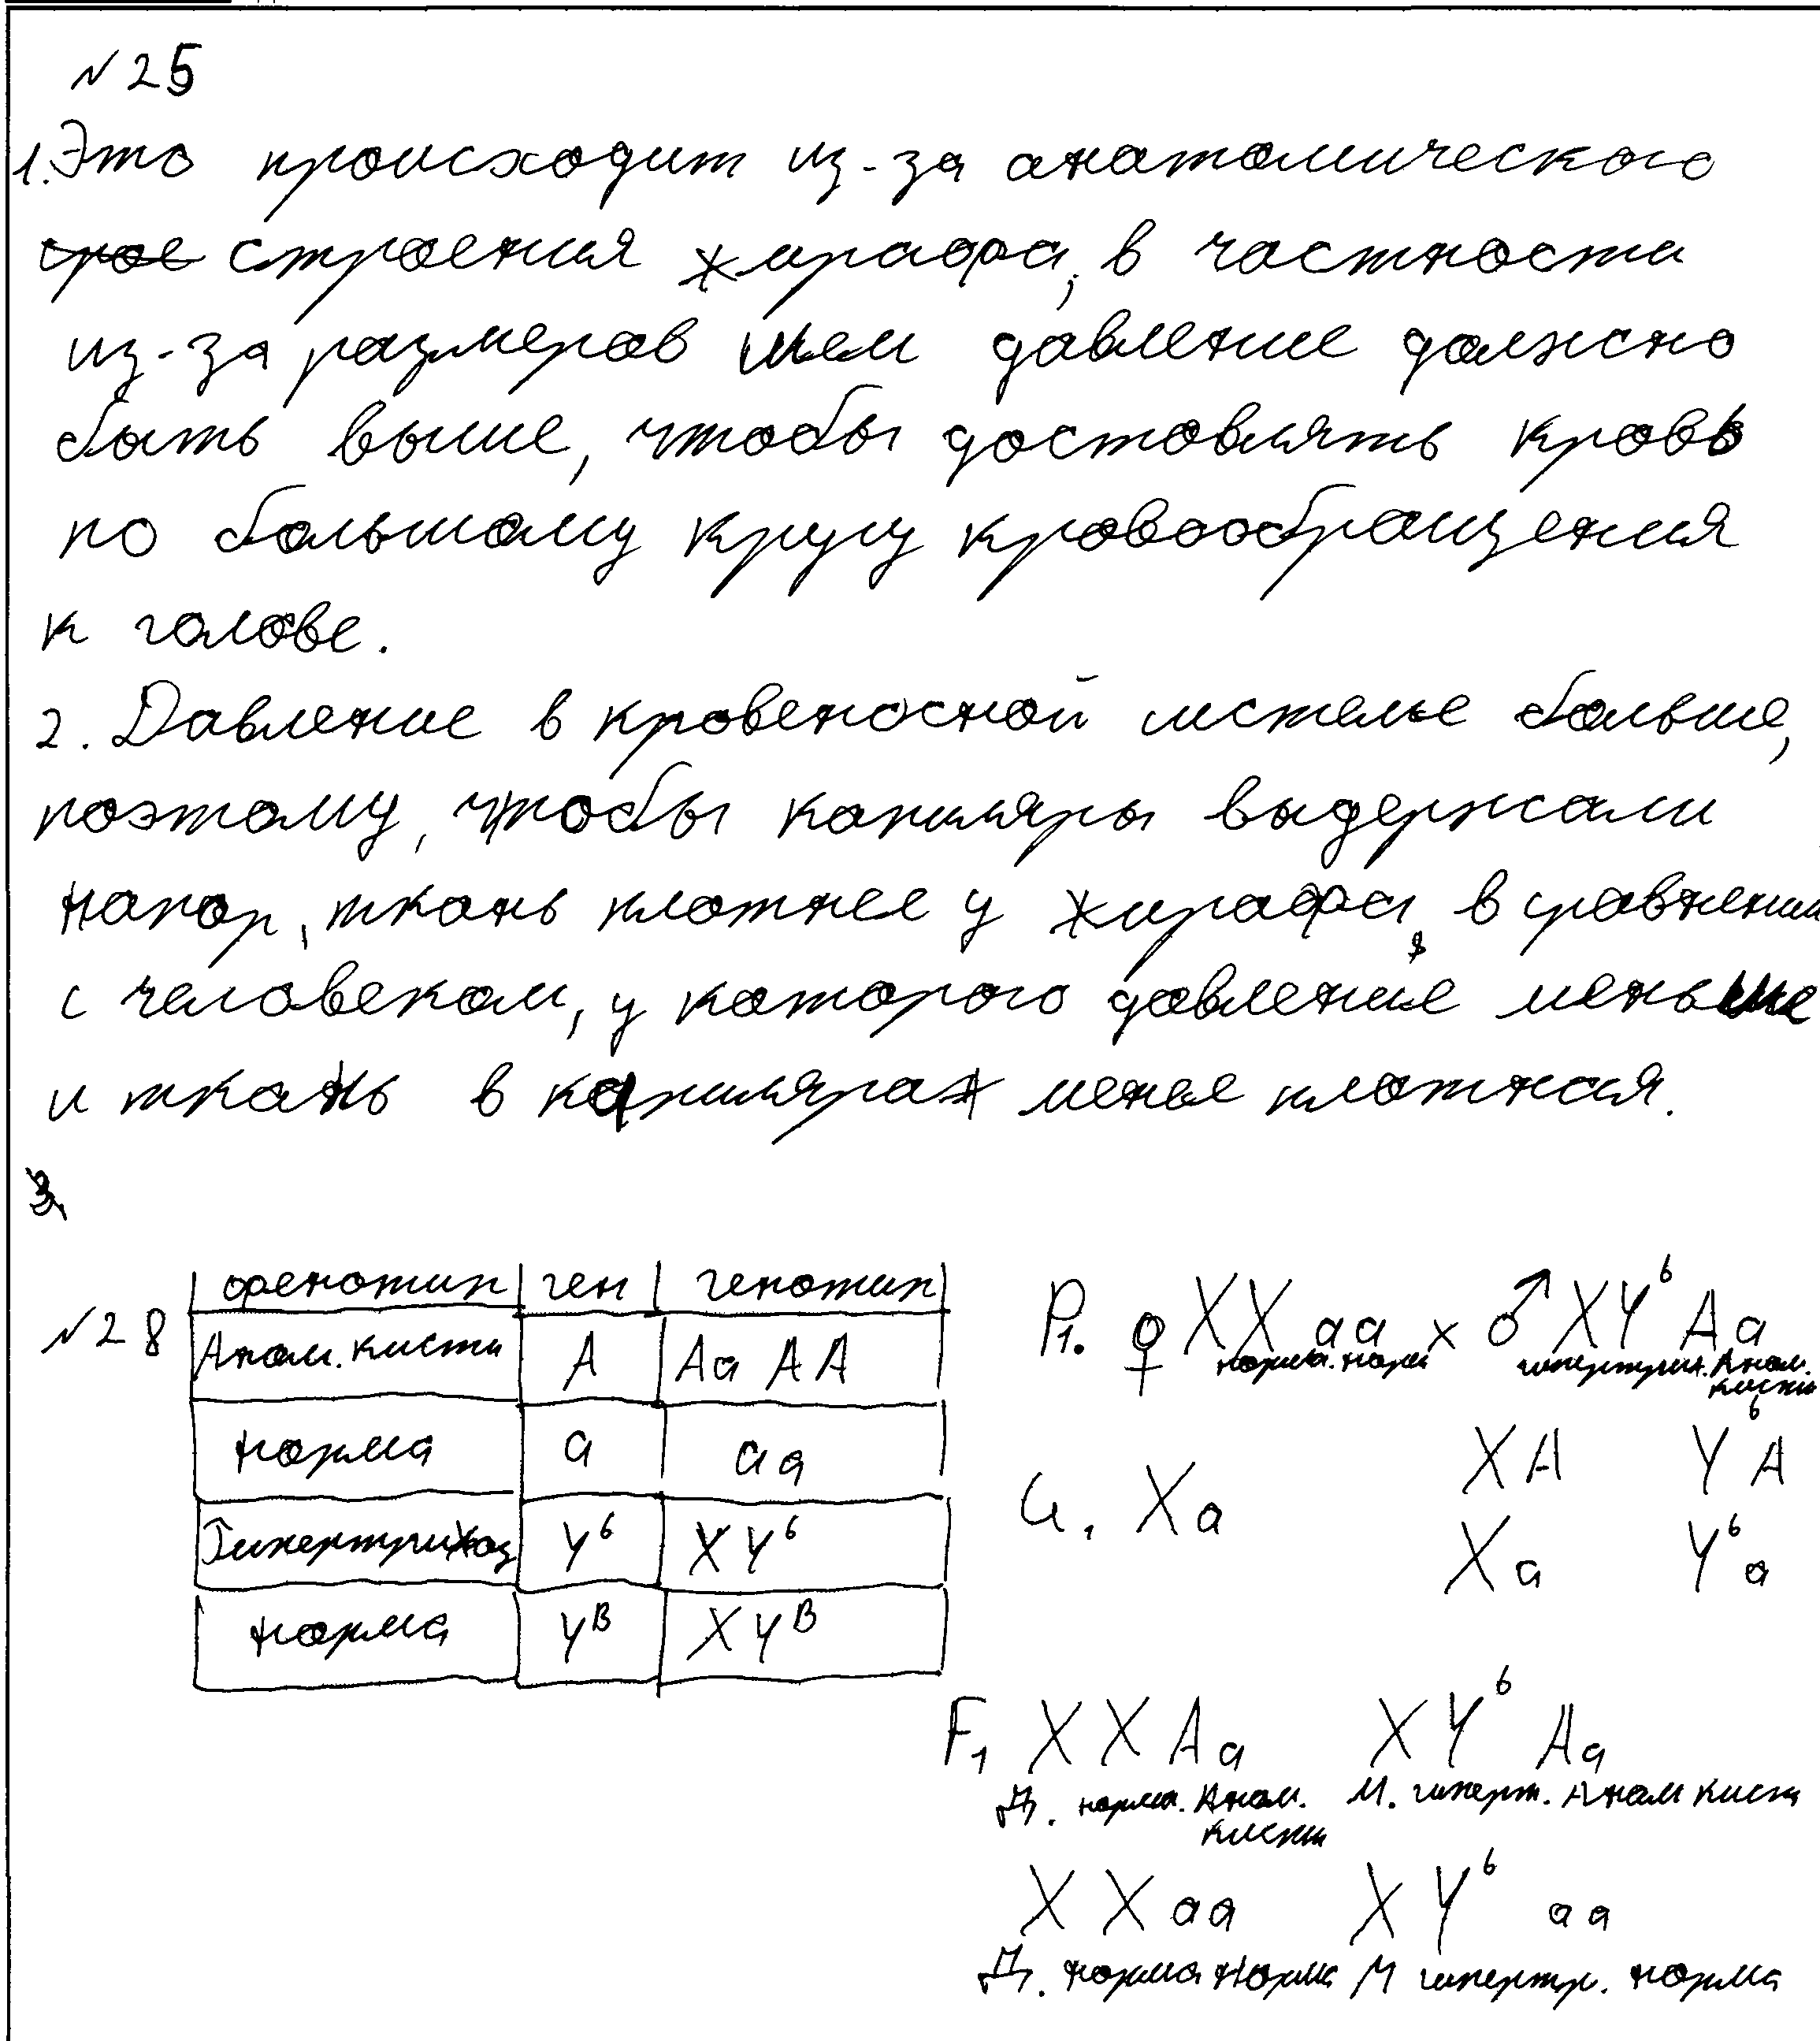 №25
1. Это происходит из-за анатомического
строения жирафа, в частности
из-за размеров шеи давление должно
быть выше, чтобы доставлять кровь
по большому кругу кровообращения
к голове.
2. Давление в кровеносной системе больше,
поэтому, чтобы капиляры выдержали
напор, ткань плотнее у жирафа, в сравнении
с человеком, у которого давление меньше
и ткань в капилярах менее плотная.
3.
№28
фенотип ген генотип
Аном. кисти А Аа АА
норма а аа
Гипертрихоз Yᵇ XYᵇ
норма Yᴮ XYᴮ
P₁. ♀ XX аа × ♂ XYᵇ Аа
норма. норм гипертрих. Аном. кисти
G₁ Xа XА YᵇА
Xа Yᵇа
F₁ XX Аа XYᵇ Аа
Д. норма. Аном. кисти М. гиперт. Аном кисти
XX аа XYᵇ аа
Д. норма норма М гипертр. норма